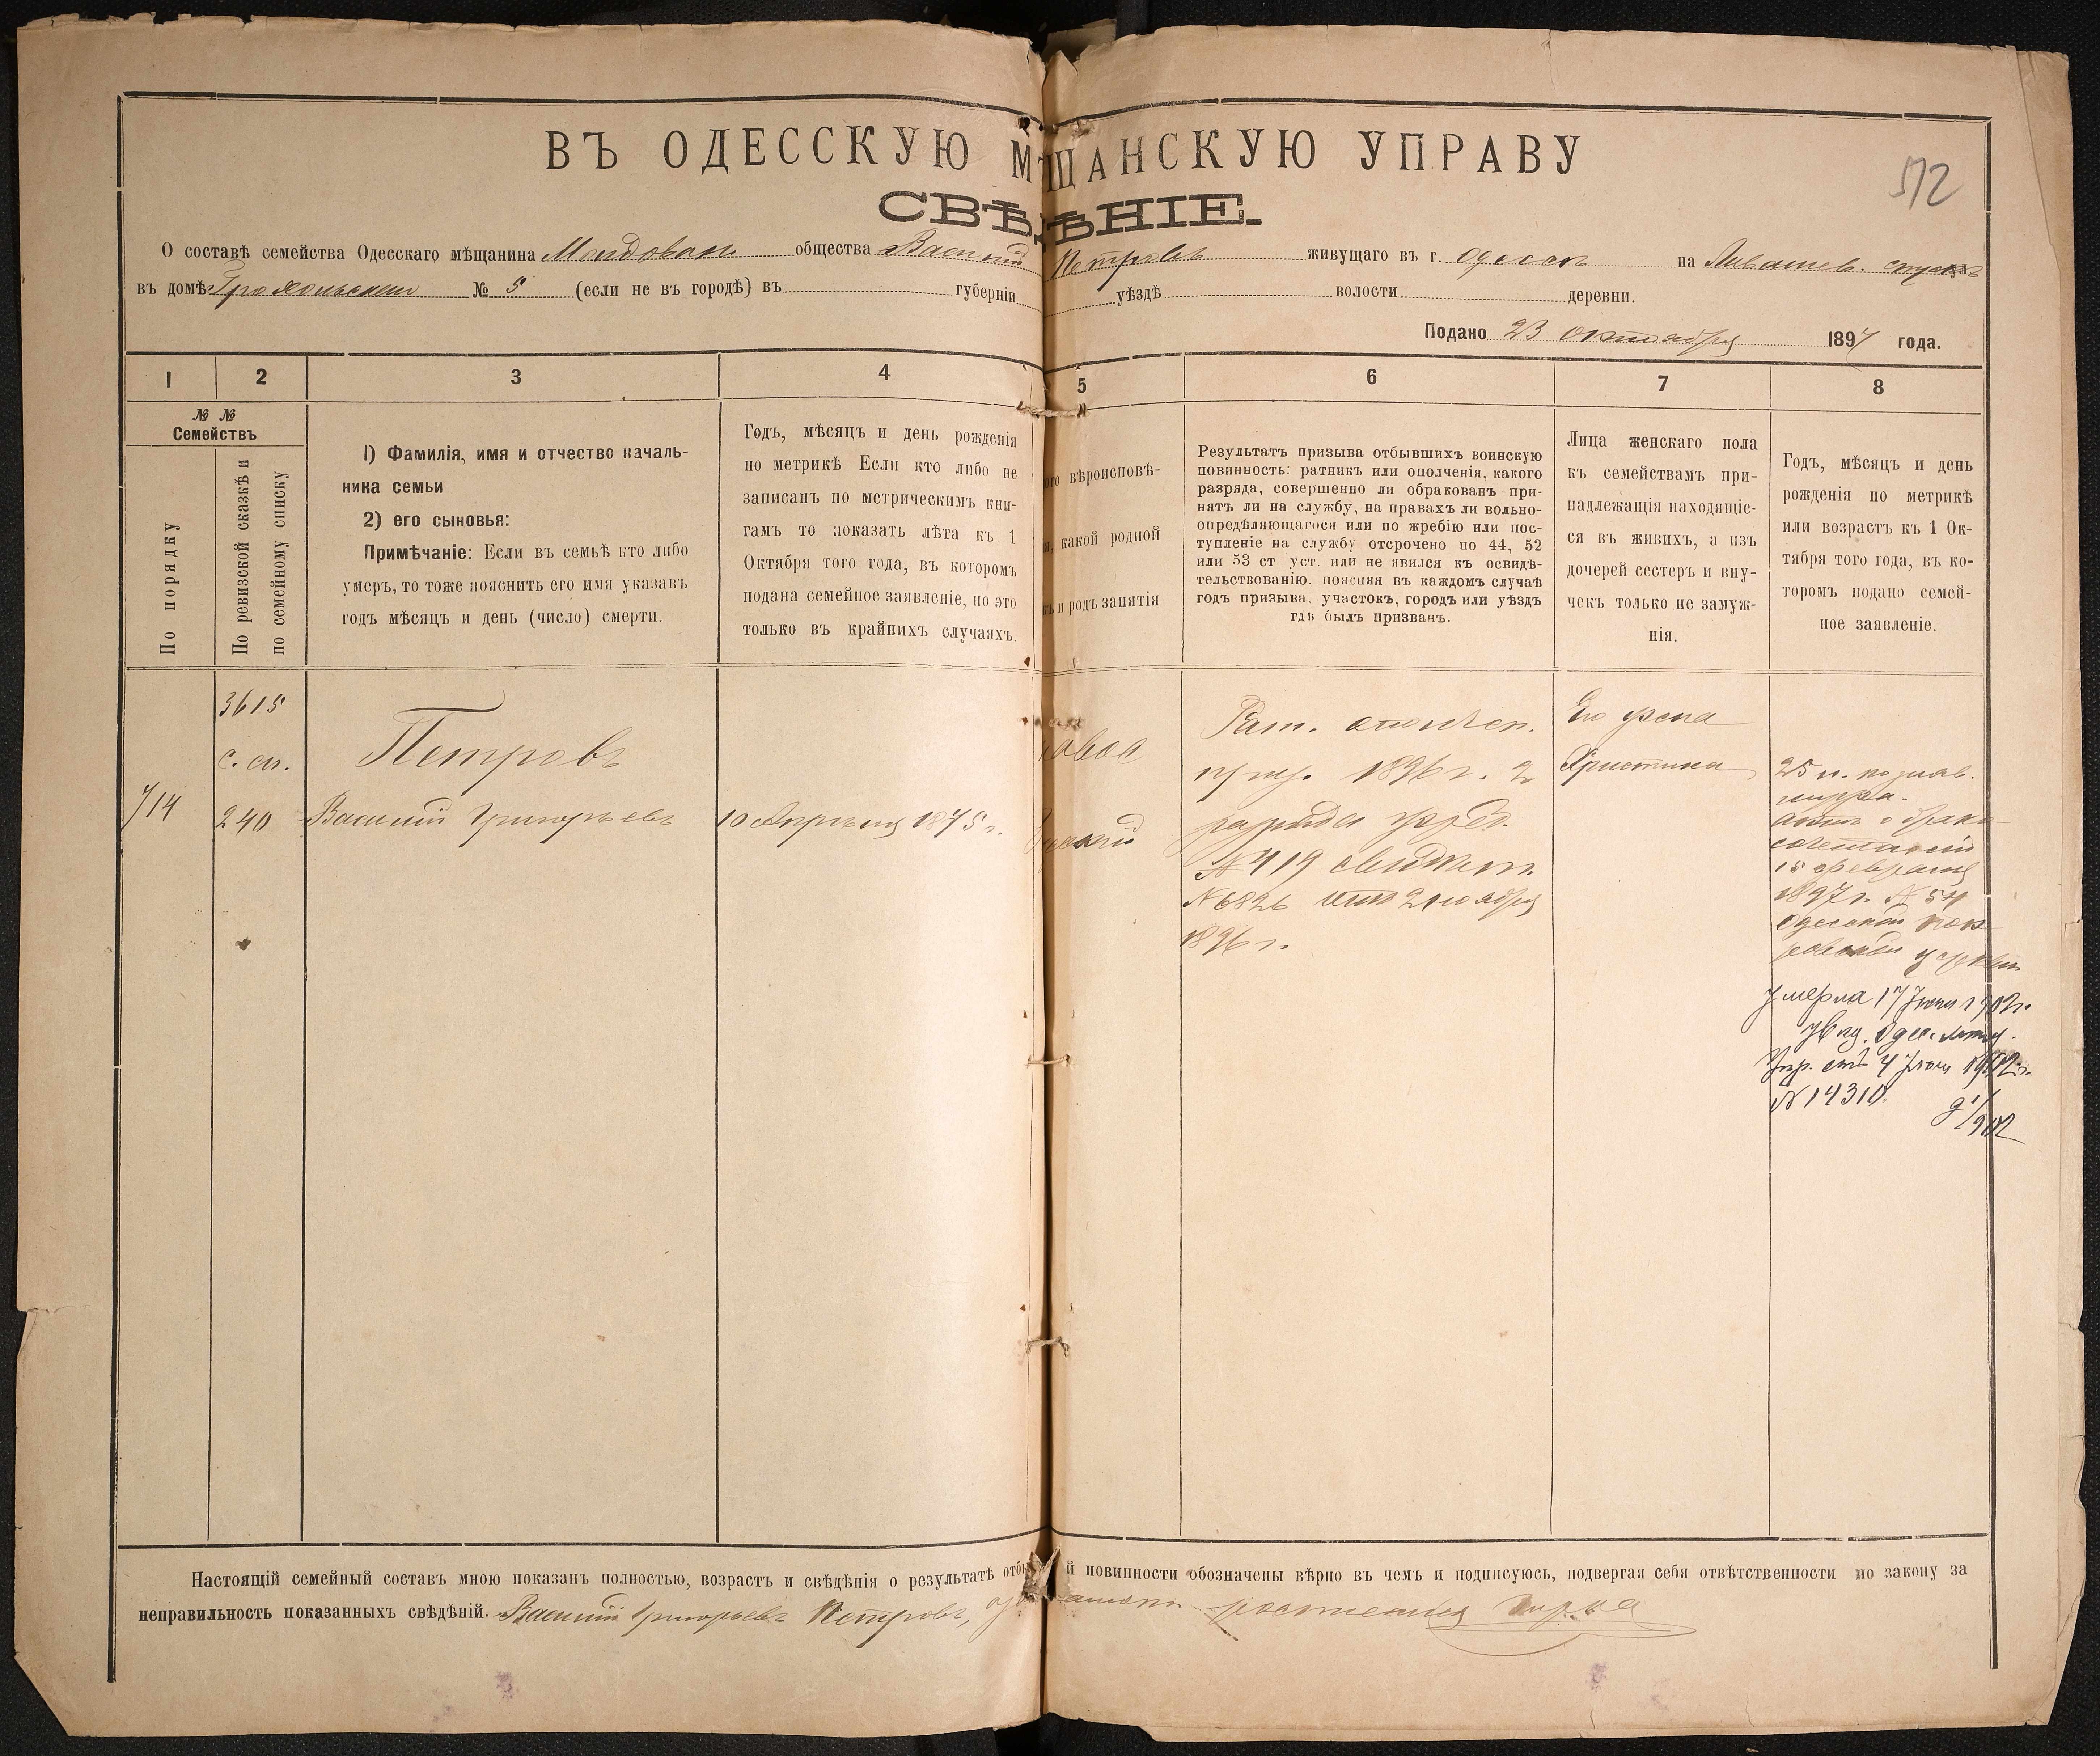 ВЪ ОДЕССКУЮ МѢЩАНСКУЮ УПРАВУ
СВѢДѢНІЕ.
512
О составѣ семейства Одесскаго мѣщанина Молдован. общества Василий Петровъ живущаго въ г. Одессѣ на спускѣ
въ домѣ № 5 (если не въ городѣ) въ губерніи уѣздѣ волости деревни.
Подано 23 октября 1897 года.
1 2 3 4 5 6 7 8
№ № Семействъ
По порядку
По ревизской сказкѣ и по семейному списку
1) Фамилія, имя и отчество началь-
ника семьи
2) его сыновья:
Примѣчаніе: Если въ семьѣ кто либо
умеръ, то тоже пояснить его имя указавъ
годъ мѣсяцъ и день (число) смерти.
Годъ, мѣсяцъ и день рожденія
по метрикѣ Если кто либо не
записанъ по метрическимъ кни-
гамъ то показать лѣта къ 1
Октября того года, въ которомъ
подана семейное заявленіе, но это
только въ крайнихъ случаяхъ.
ого вѣроисповѣ-
какой родной
и родъ занятія
Результатъ призыва отбывшихъ воинскую
повинность: ратникъ или ополченія, какого
разряда, совершенно ли обракованъ при-
нятъ ли на службу, на правахъ ли вольно-
опредѣляющагося или по жребію или пос-
тупленіе на службу отсрочено по 44, 52
или 53 ст уст. или не явился къ освидѣ-
тельствованію. поясняя въ каждомъ случаѣ
годъ призыва, участокъ, городъ или уѣздъ
гдѣ былъ призванъ.
Лица женскаго пола
къ семействамъ при-
надлежащія находящіе-
ся въ живихъ, а изъ
дочерей сестеръ и вну-
чекъ только не замуж-
нія.
Годъ, мѣсяцъ и день
рожденія по метрикѣ
или возрастъ къ 1 Ок-
тября того года, въ ко-
торомъ подано семей-
ное заявленіе.
714
3615
с. сп.
240
Петровъ
Василій Григорьевъ
10 Апрѣля 1875 г.
Рат. ополчен.
1896 г. 2
разряда жреб.
№ 419 свидѣт.
№ 6826 2 ноября
1896 г.
Его жена
Христина
25 л.
о брако
сочетаніи
15 февраля
1897 г. № 54
Одесской пок
ровской церкви
Умерла 17 1902 г.
Одес.
Упр. отъ 4 1902 г.
№ 14310
Настоящій семейный составъ мною показанъ полностью, возрастъ и свѣдѣнія о результатѣ отбы й повинности обозначены вѣрно въ чемъ и подписуюсь, подвергая себя отвѣтственности по закону за
неправильность показанныхъ свѣдѣній. Василій Григорьевъ Петровъ,